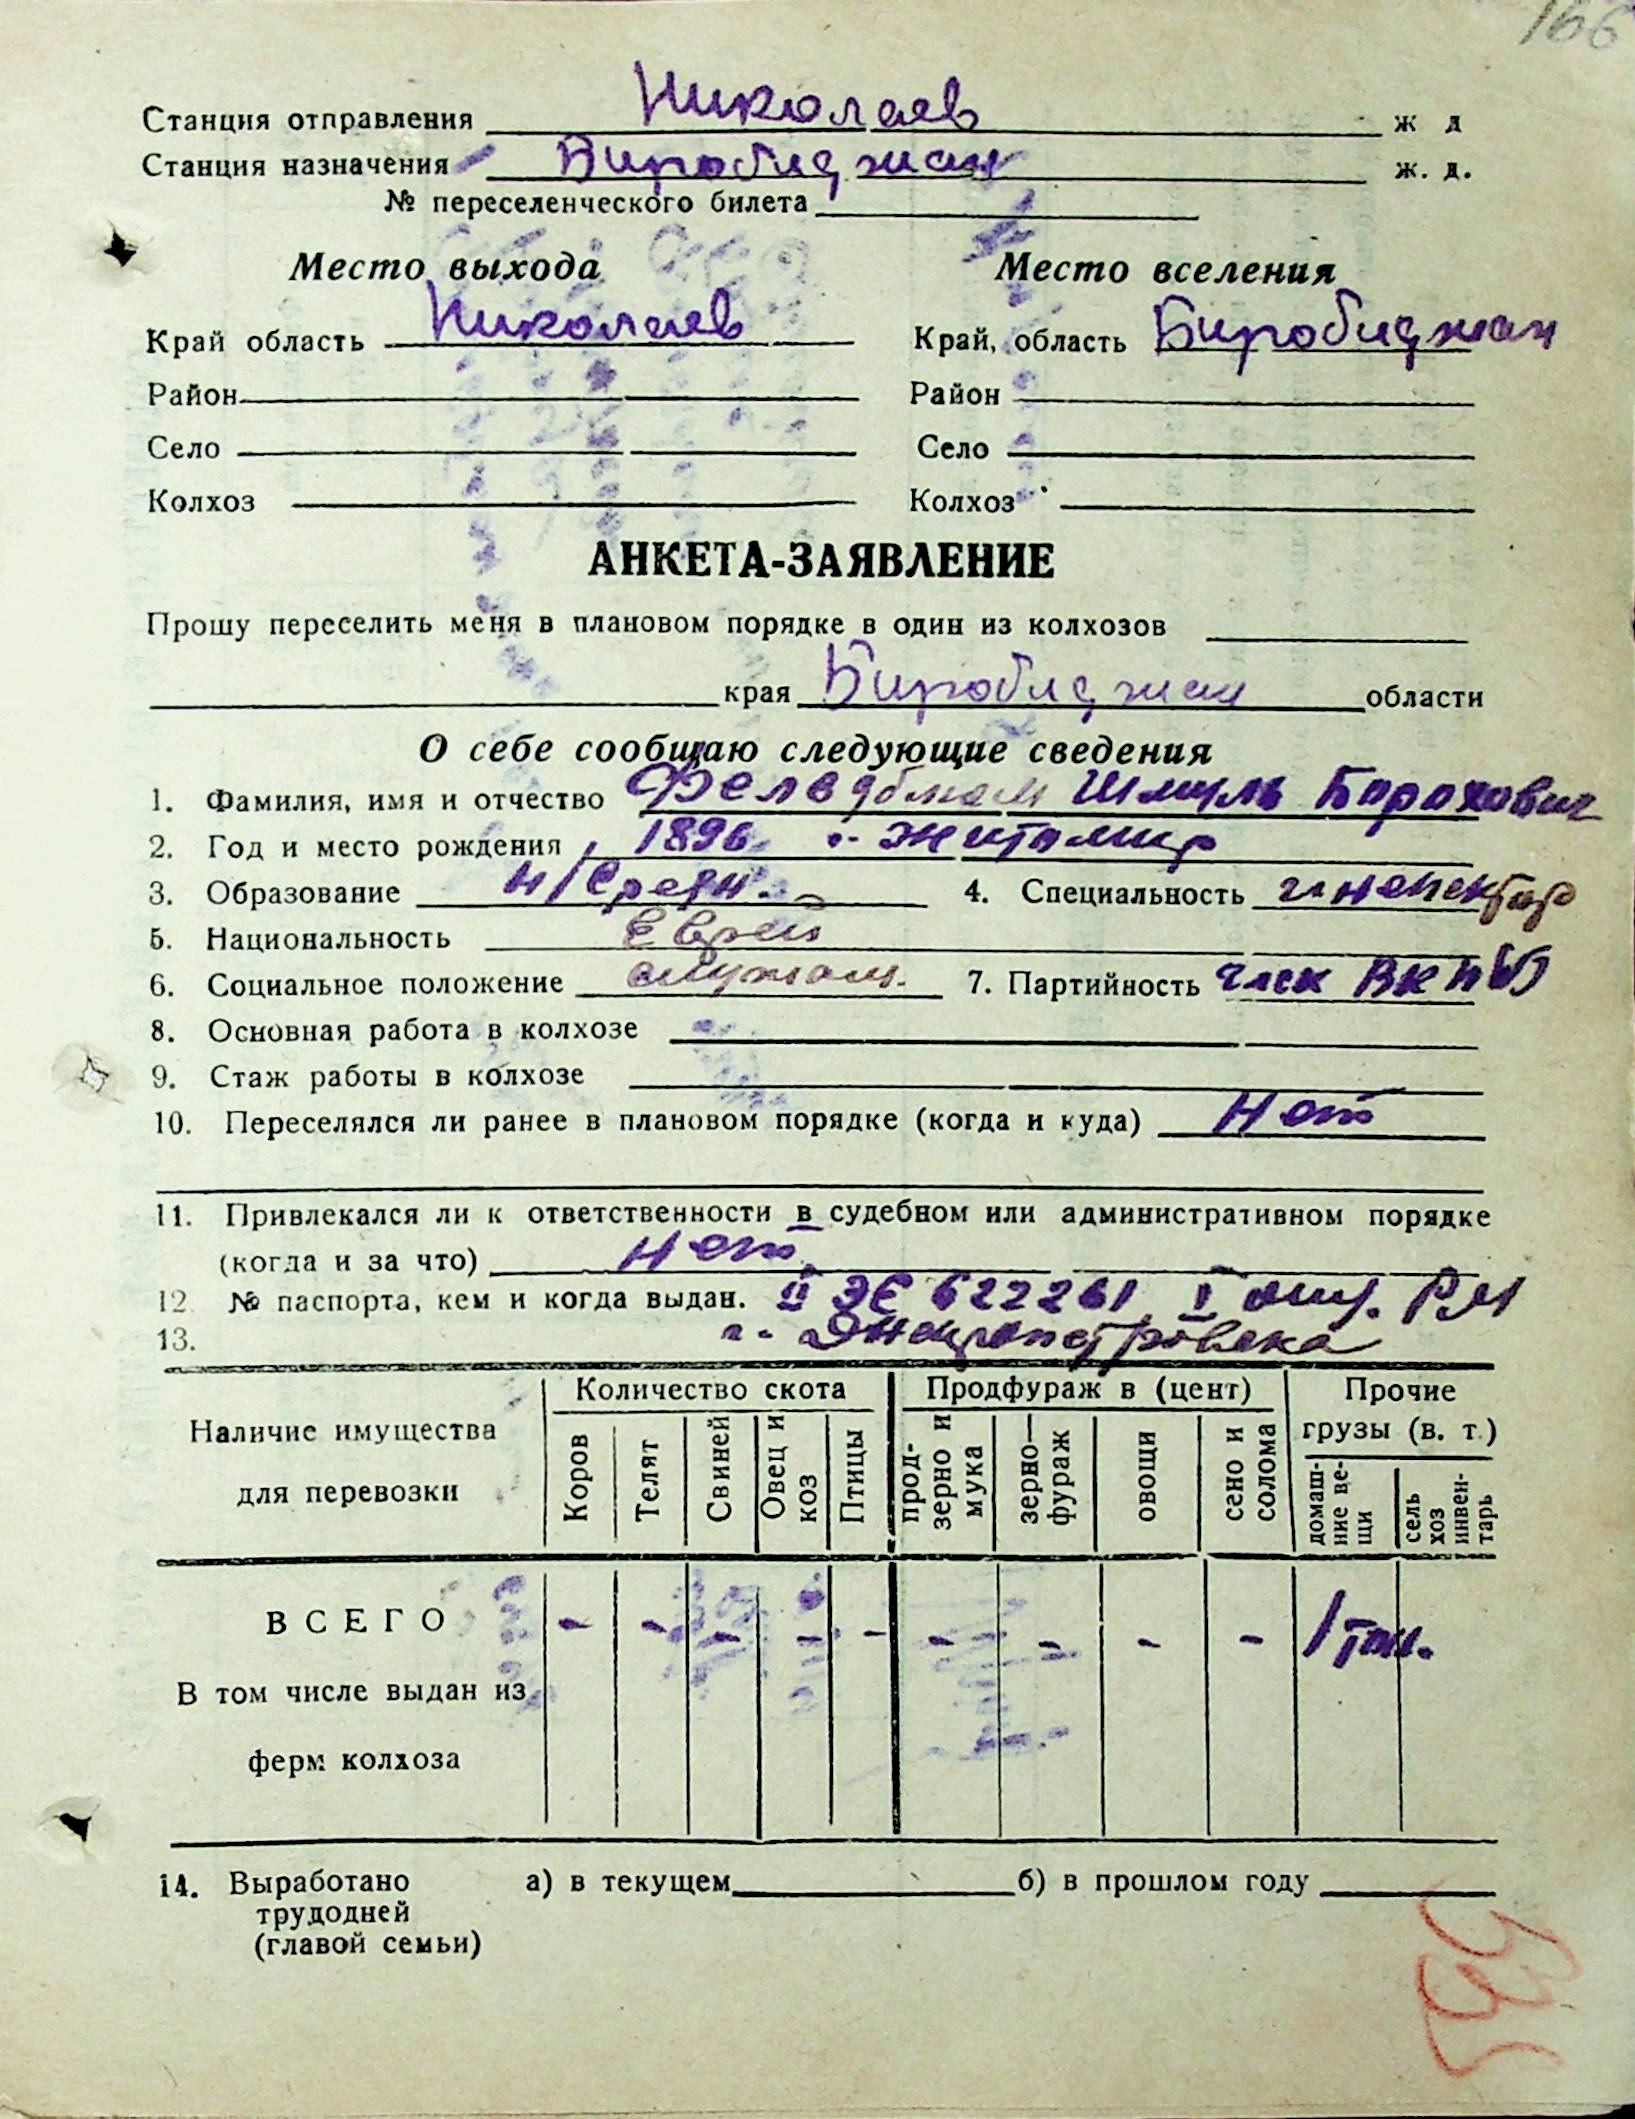 166
Станция отправления Николаев ж д
Станция назначения Биробиджан ж. д.
№ переселенческого билета
Место выхода Место вселения
Край область Николаев Край, область Биробиджан
Район Район
Село Село
Колхоз Колхоз
АНКЕТА-ЗАЯВЛЕНИЕ
Прошу переселить меня в плановом порядке в один из колхозов
края Биробиджан области
О себе сообщаю следующие сведения
1. Фамилия, имя и отчество Шмуль Борохович
2. Год и место рождения 1896 г. Житомир
3. Образование н/средн. 4. Специальность
5. Национальность Еврей
6. Социальное положение служащ. 7. Партийность член ВКП(б)
8. Основная работа в колхозе
9. Стаж работы в колхозе
10. Переселялся ли ранее в плановом порядке (когда и куда) Нет
11. Привлекался ли к ответственности в судебном или административном порядке
(когда и за что) нет
12. № паспорта, кем и когда выдан. II ЭЕ 622261 I отд. РМ
13. г. Днепропетровска
Наличие имущества для перевозки Количество скота Продфураж в (цент) Прочие грузы (в. т.)
Коров Телят Свиней Овец и коз Птицы прод-зерно и мука зерно—фураж овощи сено и солома домаш-ние ве-щи сель хоз инвен-тарь
ВСЕГО - - - - - - - - - 1 тон.
В том числе выдан из
ферм колхоза
14. Выработано а) в текущем б) в прошлом году
трудодней
(главой семьи)